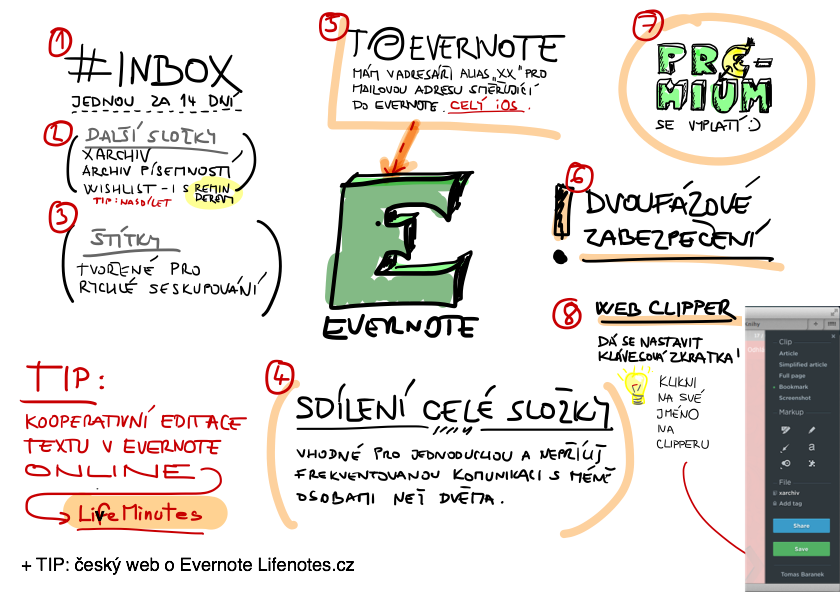 1
#INBOX
JEDNOU ZA 14 DNÍ
2
DALŠÍ SLOŽKY
XARCHIV
ARCHIV PÍSEMNOSTÍ
WISHLIST - I S REMIN
DEREM
TIP: NASDÍLET
3
ŠTÍTKY
TVOŘENÉ PRO
RYCHLÉ SESKUPOVÁNÍ
TIP:
KOOPERATIVNÍ EDITACE
TEXTU V EVERNOTE
ONLINE
LifeMinutes
+ TIP: český web o Evernote Lifenotes.cz
5
T@EVERNOTE
MÁM V ADRESÁŘI ALIAS „XX" PRO
MAILOVOU ADRESU SMĚŘUJÍCÍ
DO EVERNOTE. CELÝ iOS.
E
EVERNOTE
4
SDÍLENÍ CELÉ SLOŽKY
VHODNÉ PRO JEDNODUCHOU A NEPŘÍLIŠ
FREKVENTOVANOU KOMUNIKACI S MÉNĚ
OSOBAMI NEŽ DVĚMA.
7
PRE-
MIUM
SE VYPLATÍ :)
6
! DVOUFÁZOVÉ
ZABEZPEČENÍ
8
WEB CLIPPER
DÁ SE NASTAVIT
KLÁVESOVÁ ZKRATKA!
KLIKNI
NA SVÉ
JMÉNO
NA
CLIPPERU
Clip
Article
Simplified article
Full page
Bookmark
Screenshot
Markup
a
File
xarchiv
Add tag
Share
Save
Tomas Baranek